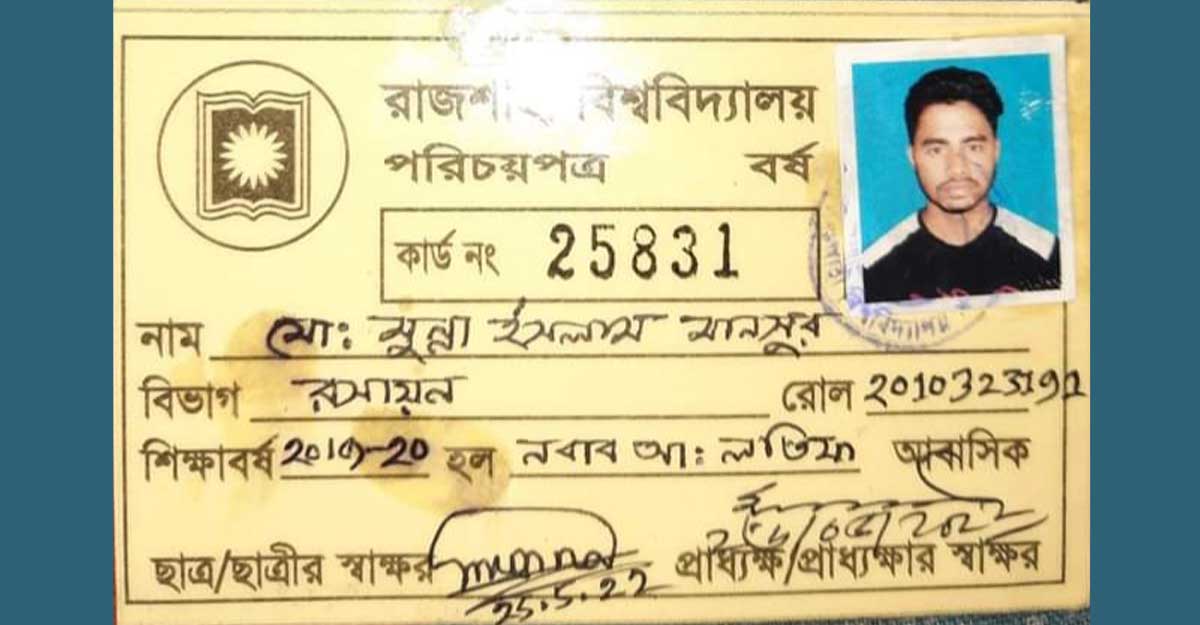 রাজশাহী বিশ্ববিদ্যালয়
পরিচয়পত্র বর্ষ
কার্ড নং 25831
নাম মো: মুন্না ইসলাম মানসুর
বিভাগ রসায়ন রোল 2010323191
শিক্ষাবর্ষ 2019-20 হল নবাব আ: লতিফ আবাসিক
ছাত্র/ছাত্রীর স্বাক্ষর munna প্রাধ্যক্ষ/প্রাধ্যক্ষার স্বাক্ষর
25.5.22